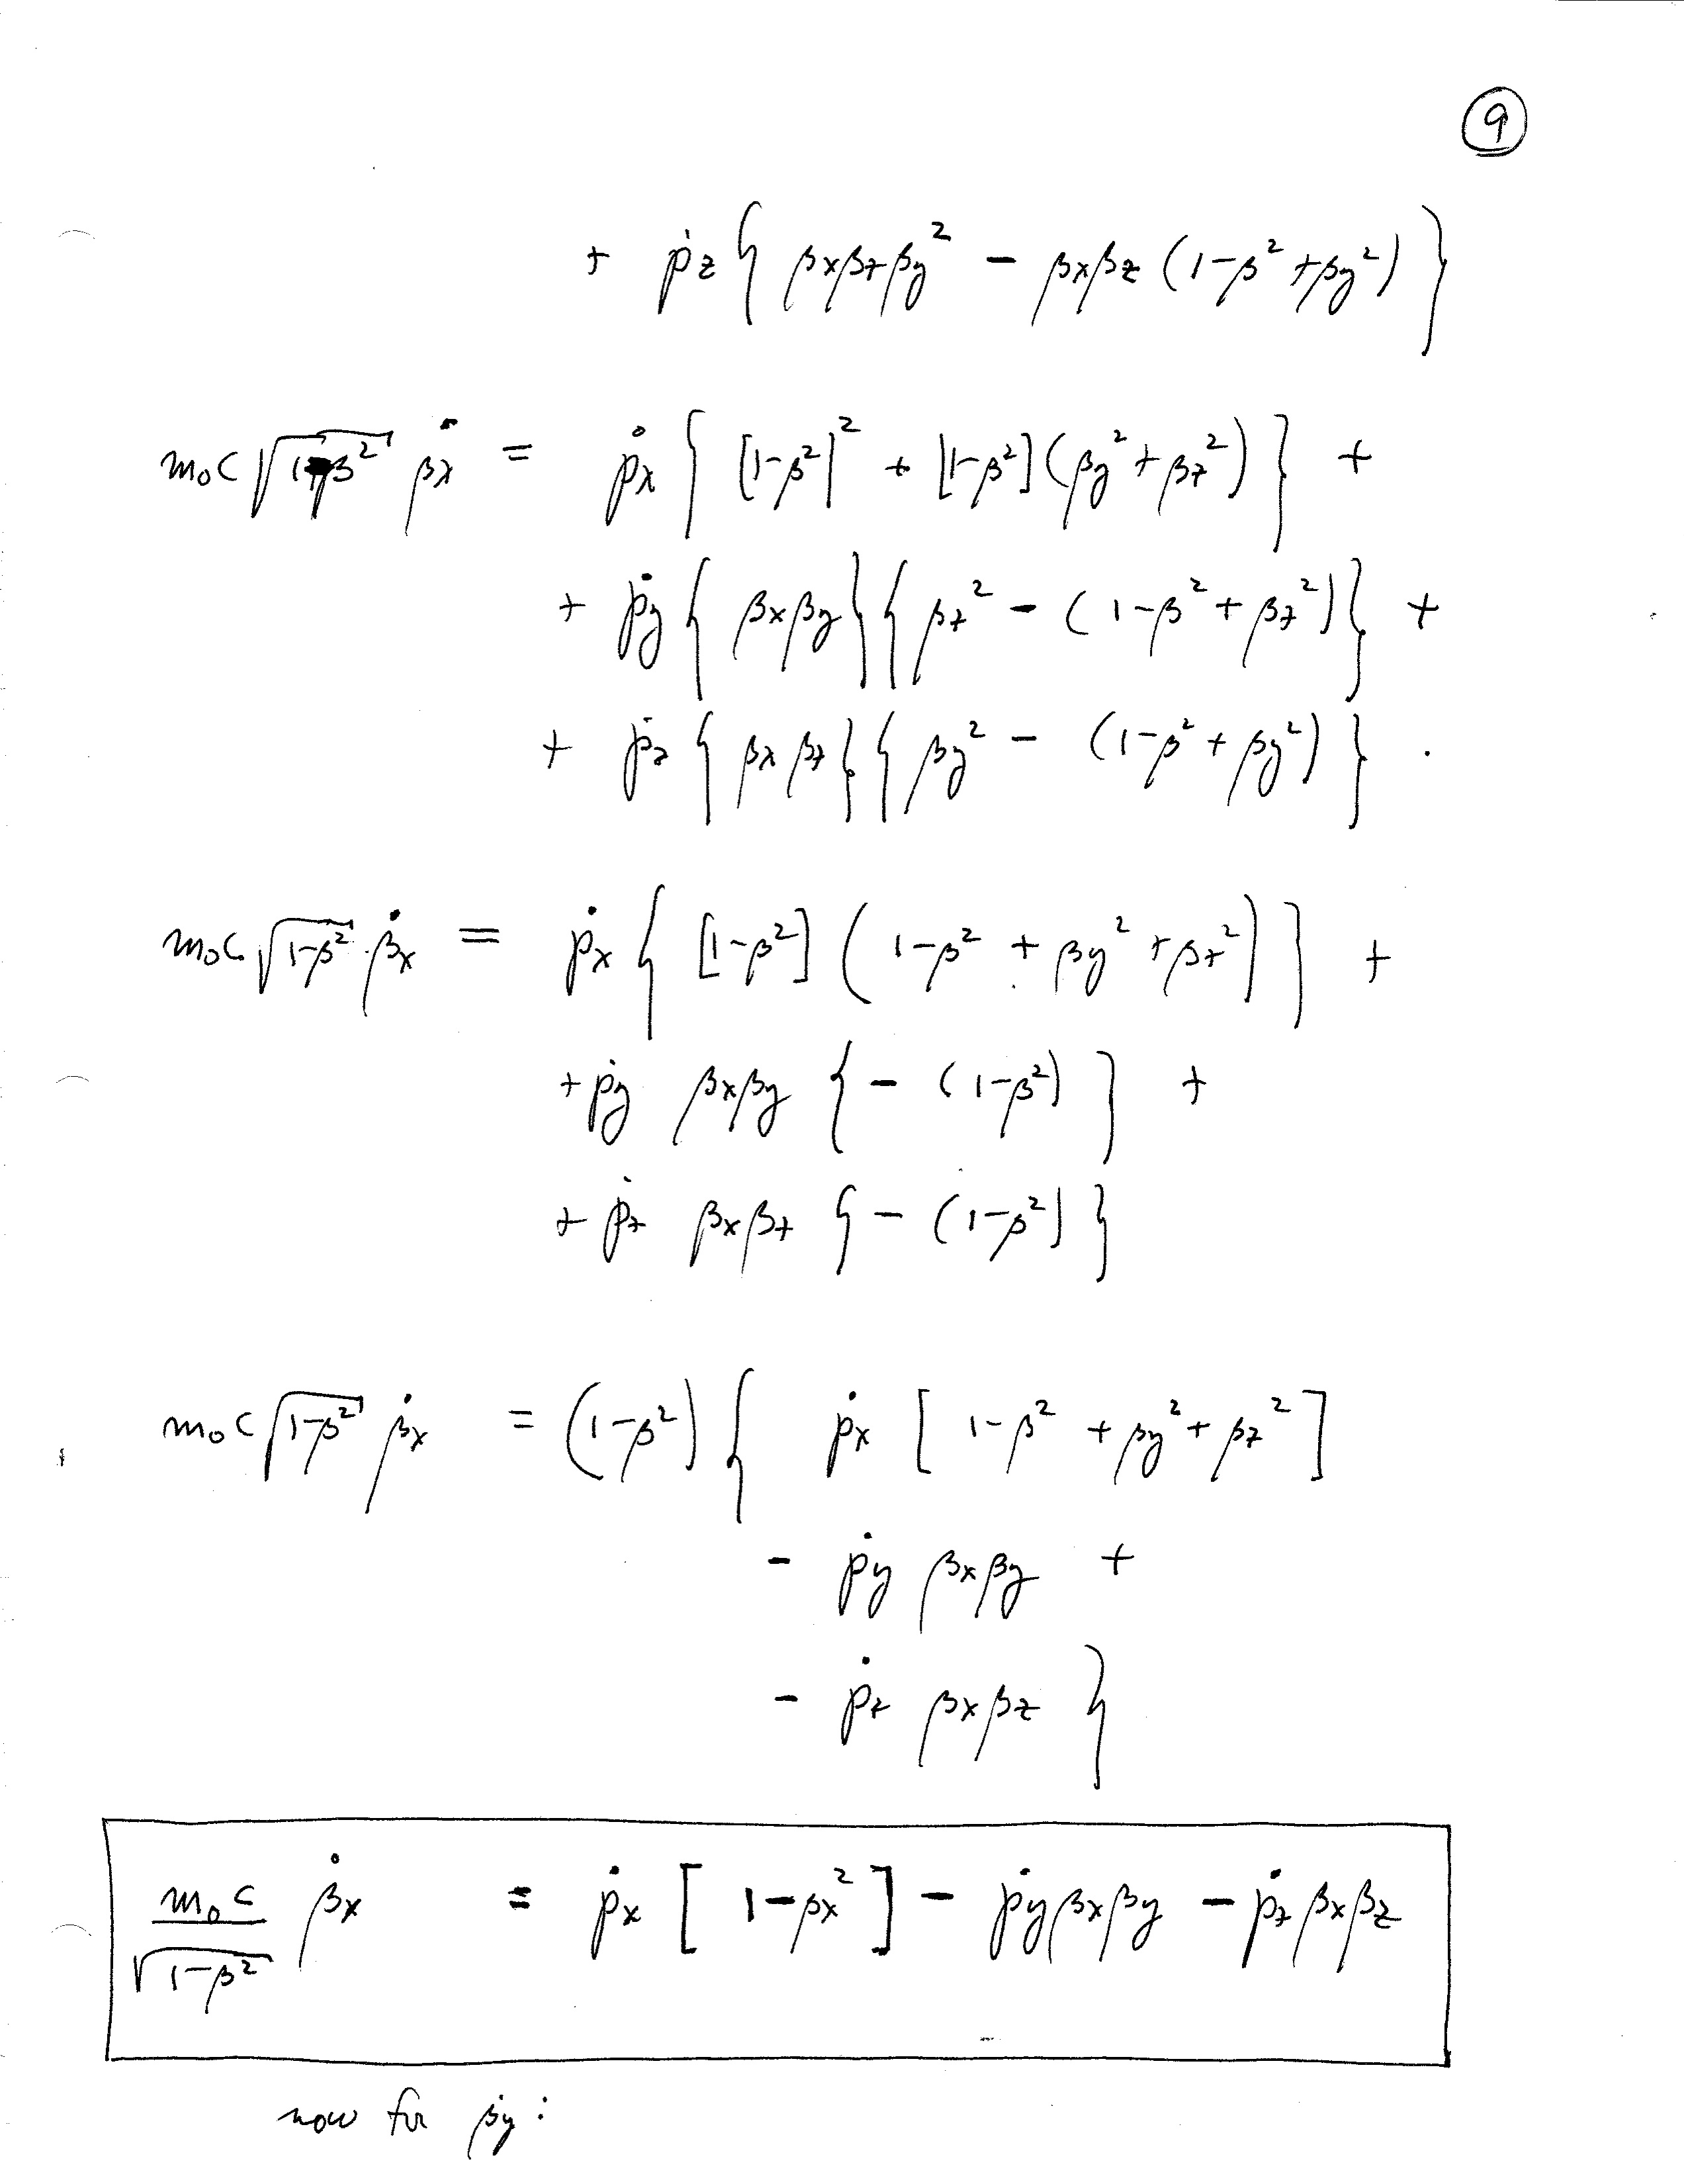 9
+ ṗz { βxβzβy² − βxβz (1−β²+βy²) }
m₀c √(1−β²) β̇x = ṗx { [1−β²]² + [1−β²](βy²+βz²) } +
+ ṗy { βxβy } { βz² − (1−β²+βz²) } +
+ ṗz { βxβz } { βy² − (1−β²+βy²) } .
m₀c √(1−β²) β̇x = ṗx { [1−β²] (1−β² + βy² + βz²) } +
+ ṗy βxβy { − (1−β²) } +
+ ṗz βxβz { − (1−β²) }
m₀c √(1−β²) β̇x = (1−β²) { ṗx [ 1−β² + βy² + βz² ]
− ṗy βxβy +
− ṗz βxβz }
m₀c/√(1−β²) β̇x = ṗx [ 1−βx² ] − ṗyβxβy − ṗzβxβz
now for β̇y :